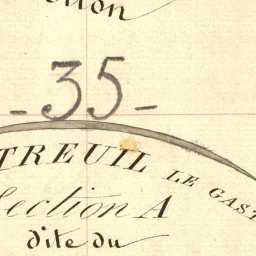 - 35 -
TREUIL LE GAST
Section A
dite du